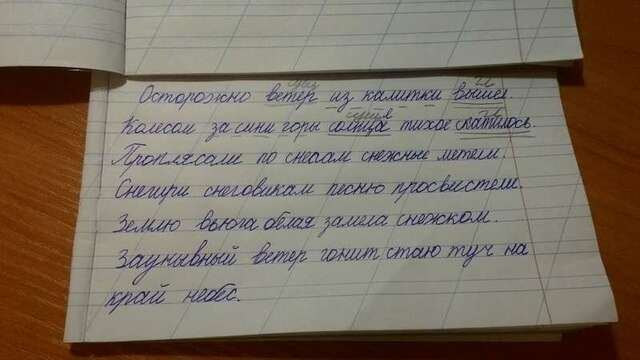 Осторожно ветер из калитки вышел.
Колесом за сини горы солнце тихое скатилось.
Проплясали по снегам снежные метели.
Снегири снеговикам песню просвистели.
Землю вьюга белая замела снежком.
Заунывный ветер гонит стаю туч на
край небес.